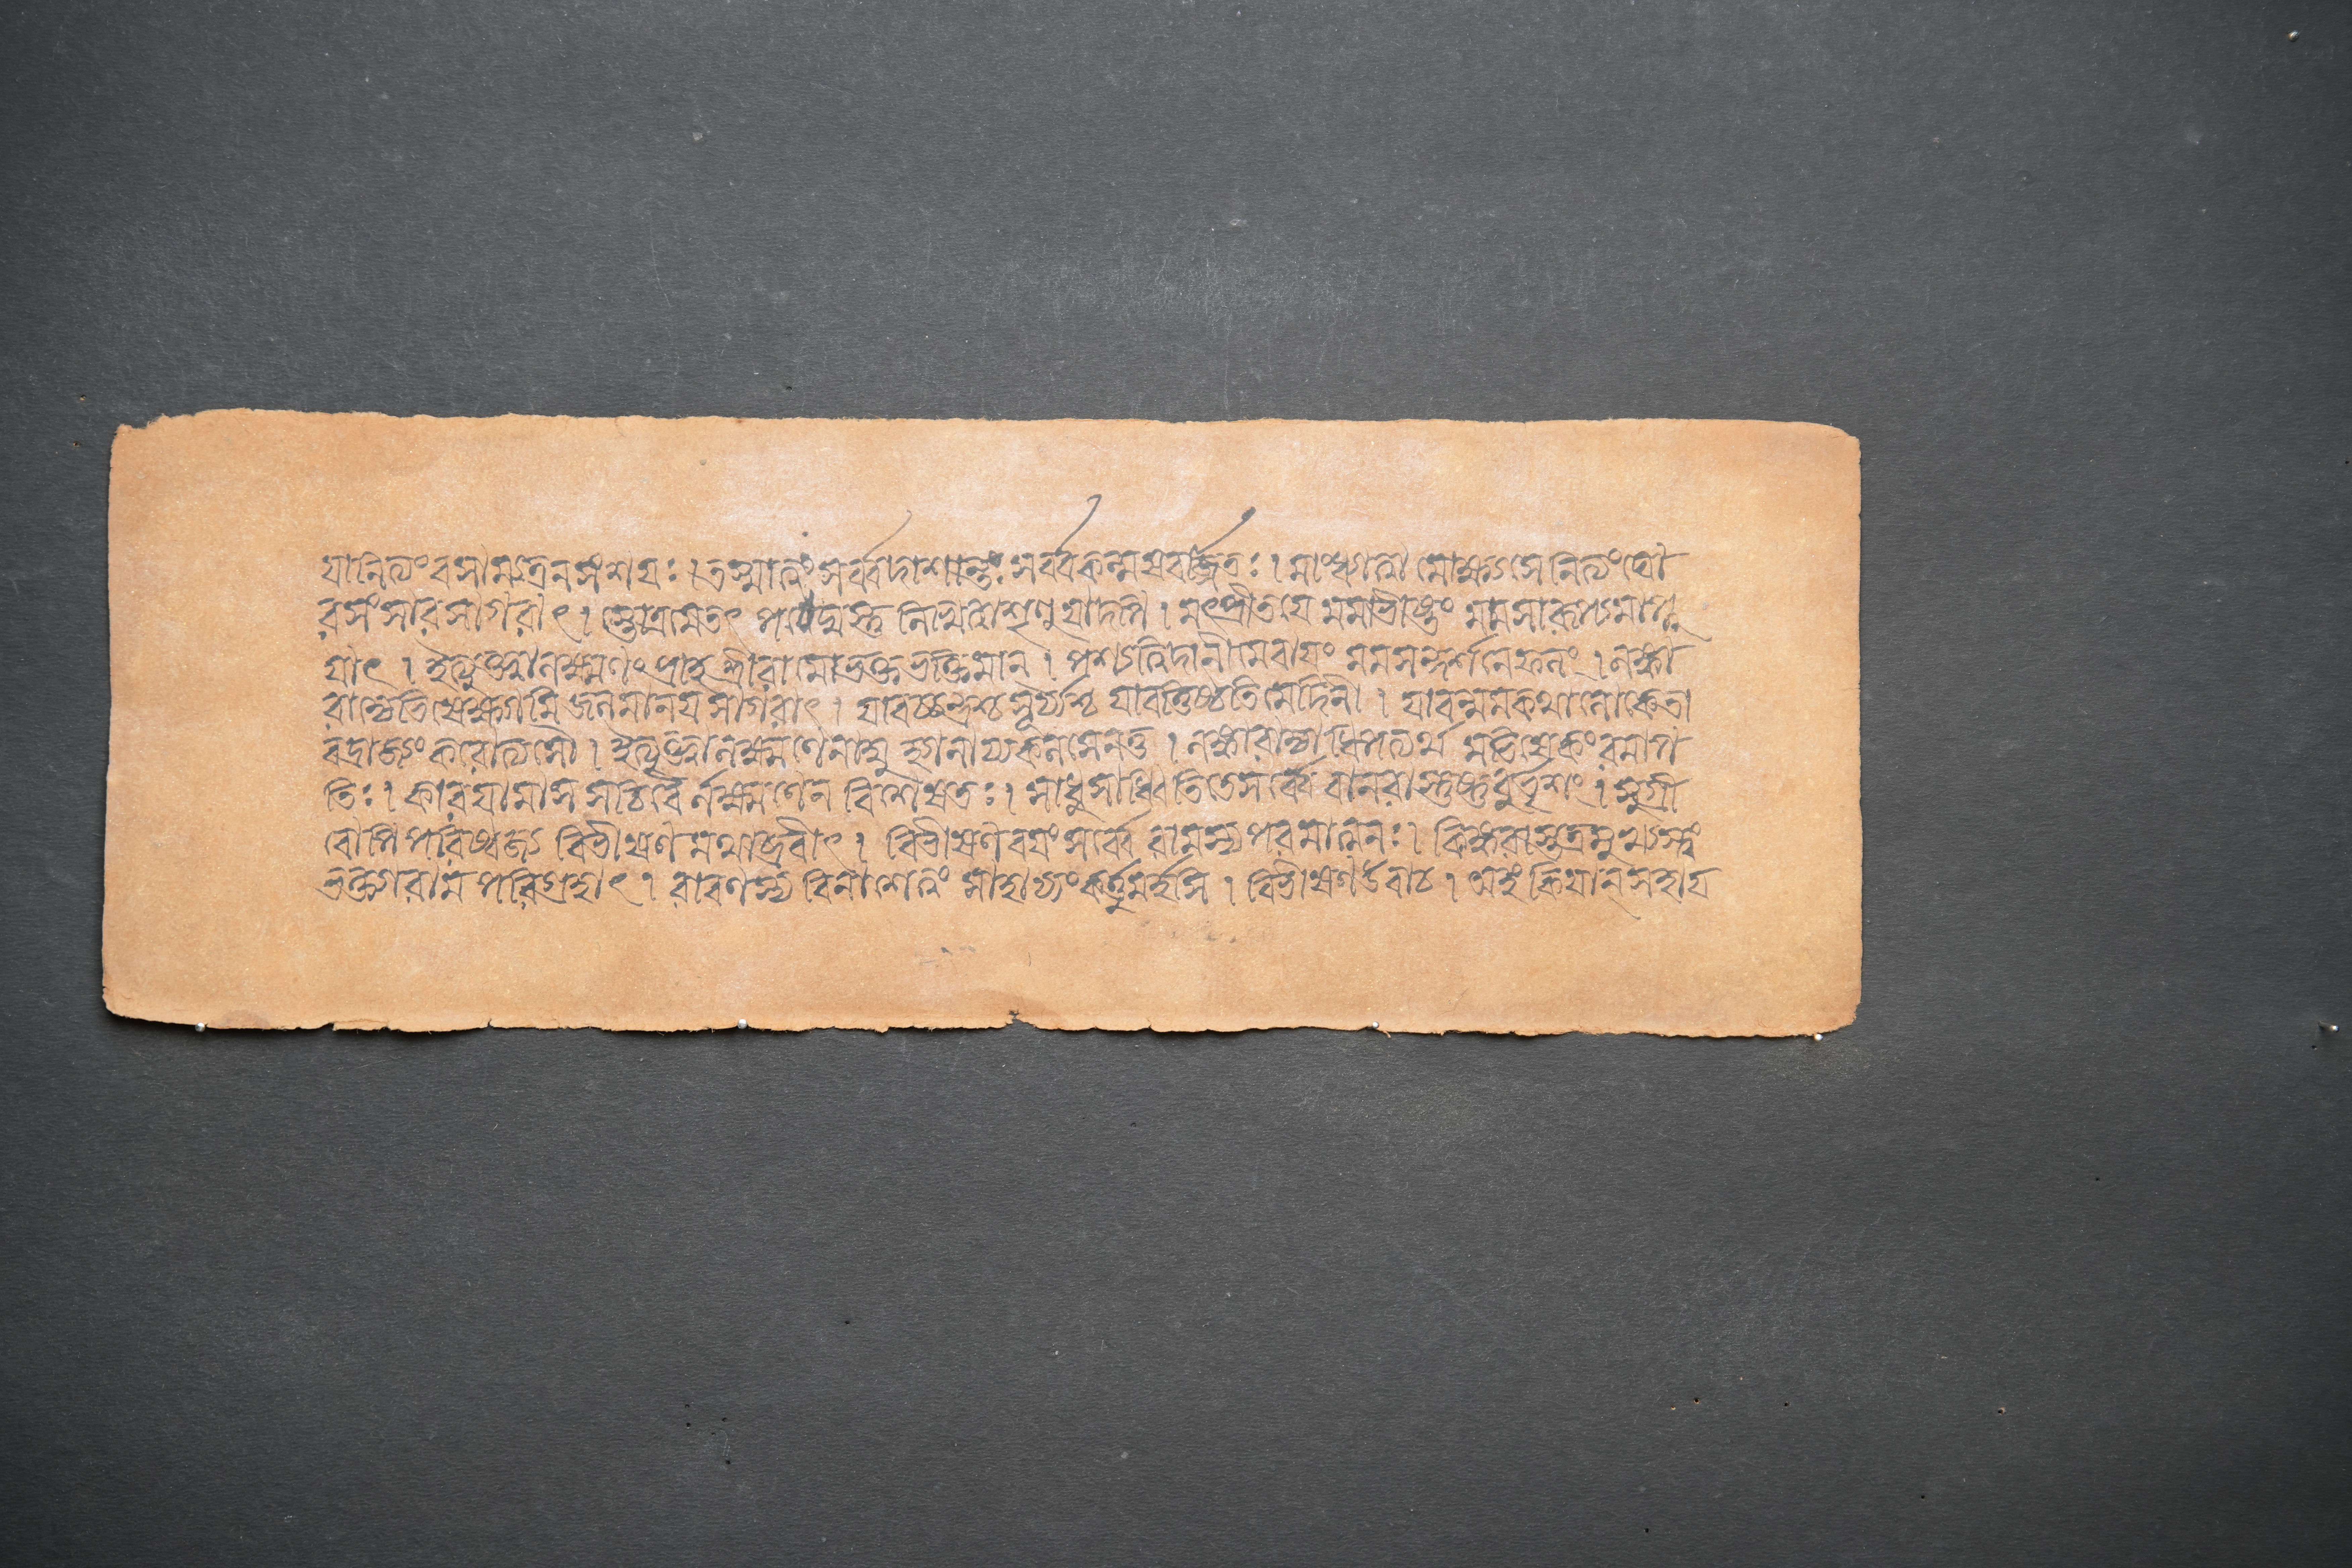 যানিত্যং বসাম্যত্র ন সংশয়ঃ । তস্মাত্ত্বং সর্ব্বদা শান্তঃ সর্ব্বকল্মষবর্জ্জিতঃ । মাং ধ্যাত্বা মোক্ষ্যসে নিত্যং ঘো
রসংসারসাগরাৎ । স্তোত্রমেতৎ পঠেদ্যস্তু লিখেদ্বা শৃণুয়াদপি । মৎপ্রীতয়ে মমাভীষ্টং মমসারূপ্যমাপ্নু
য়াৎ । ইত্যুক্ত্বা লক্ষ্মণং প্রাহ শ্রীরামো ভক্তভক্তিমান্ । পশ্যত্বিদানীমেবায়ং মমসন্দর্শনে ফলং । লঙ্কা
রাজ্যেভিষেক্ষ্যামি জলমানয় সাগরাৎ । যাবচ্চন্দ্রশ্চ সূর্য্যশ্চ যাবত্তিষ্ঠতি মেদিনী । যাবন্মম কথা লোকে তা
বদ্রাজ্যং করোত্বসৌ । ইত্যুক্ত্বা লক্ষ্মণেনাম্বু হ্যানায্য কলসেন তু । লঙ্কারাজ্যাধিপত্যর্থ মভিষেকং রমাপ
তিঃ । কারয়ামাস সচিবৈর্লক্ষ্মণেন বিশেষতঃ । সাধু সাধ্বিতি তে সর্ব্বে বানরাস্তুষ্টুবুর্ভৃশং । সুগ্রী
বোপি পরিষ্বজ্য বিভীষণমথাব্রবীৎ । বিভীষণ বয়ং সর্ব্বে রামস্য পরমাত্মনঃ । কিঙ্করাস্তত্র মুখ্যস্ত্বং
ভক্ত্যা রামপরিগ্রহাৎ । রাবণস্য বিনাশে ত্বং সাহায্যং কর্ত্তুমর্হসি । বিভীষণ উবাচ । অহং কিয়ান্ সহায়